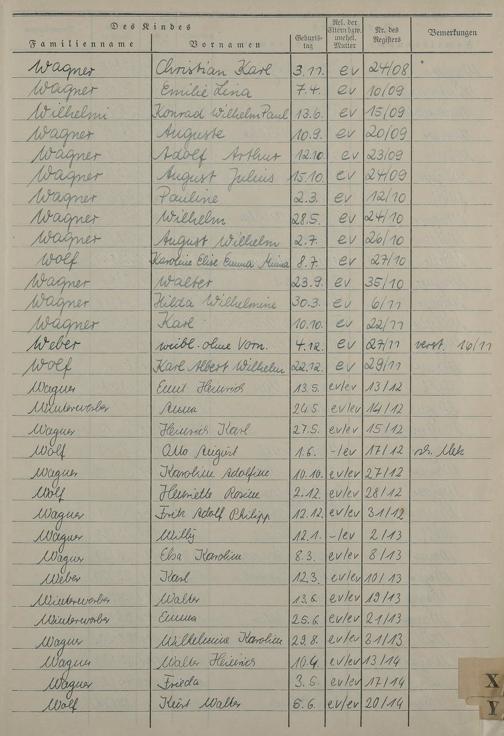 Des Kindes
Familienname Vornamen Geburtstag Rel. der Eltern bzw. unehel. Mutter Nr. des Registers Bemerkungen
Wagner Christian Karl 3.11. ev 24/08
Wagner Emilie Lina 7.4. ev 10/09
Wilhelmi Konrad Wilhelm Paul 13.6. ev 15/09
Wagner Auguste 10.9. ev 20/09
Wagner Adolf Arthur 12.10. ev 23/09
Wagner August Julius 15.10. ev 24/09
Wagner Pauline 2.3. ev 12/10
Wagner Wilhelm 28.5. ev 24/10
Wagner August Wilhelm 2.7. ev 26/10
Wolf Karoline Elise Emma Minna 8.7. ev 27/10
Wagner Walter 23.9. ev 35/10
Wagner Hilda Wilhelmine 30.3. ev 6/11
Wagner Karl 10.10. ev 22/11
Weber weibl. ohne Vorn. 4.12. ev 27/11 verst. 16/11
Wolf Karl Albert Wilhelm 22.12. ev 29/11
Wagner Emil Heinrich 13.5. ev/ev 13/12
Winterwerber Anna 24.5. ev/ev 14/12
Wagner Heinrich Karl 27.5. ev/ev 15/12
Wolf Otto August 1.6. -/ev 17/12
Wagner Karoline Adolfine 10.10. ev/ev 27/12
Wolf Henriette Rosine 2.12. ev/ev 28/12
Wagner Fritz Adolf Philipp 12.12. ev/ev 31/12
Wagner Willy 12.1. -/ev 2/13
Wagner Elsa Karoline 8.3. ev/ev 8/13
Weber Karl 12.3. ev/ev 10/13
Winterwerber Walter 13.6. ev/ev 19/13
Winterwerber Emma 25.6. ev/ev 21/13
Wagner Wilhelmine Karoline 29.8. ev/ev 31/13
Wagner Walter Heinrich 10.4. ev/ev 13/14
Wagner Frieda 3.5. ev/ev 17/14
Wolf Kurt Walter 6.6. ev/ev 20/14
X
Y